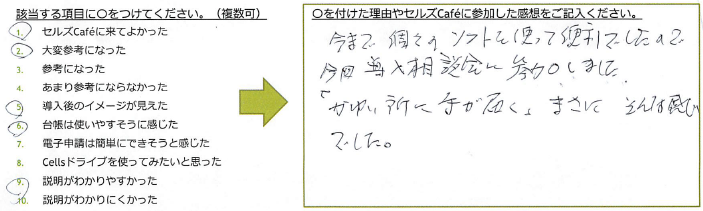 該当する項目に〇をつけてください。（複数可）
1. セルズCaféに来てよかった
2. 大変参考になった
3. 参考になった
4. あまり参考にならなかった
5. 導入後のイメージが見えた
6. 台帳は使いやすそうに感じた
7. 電子申請は簡単にできそうと感じた
8. Cellsドライブを使ってみたいと思った
9. 説明がわかりやすかった
10. 説明がわかりにくかった
〇を付けた理由やセルズCaféに参加した感想をご記入ください。
今まで個々のソフトを使って便利でしたので
今回導入相談会に参加しました。
「かゆい所に手が届く」まさにそんな感じ
でした。